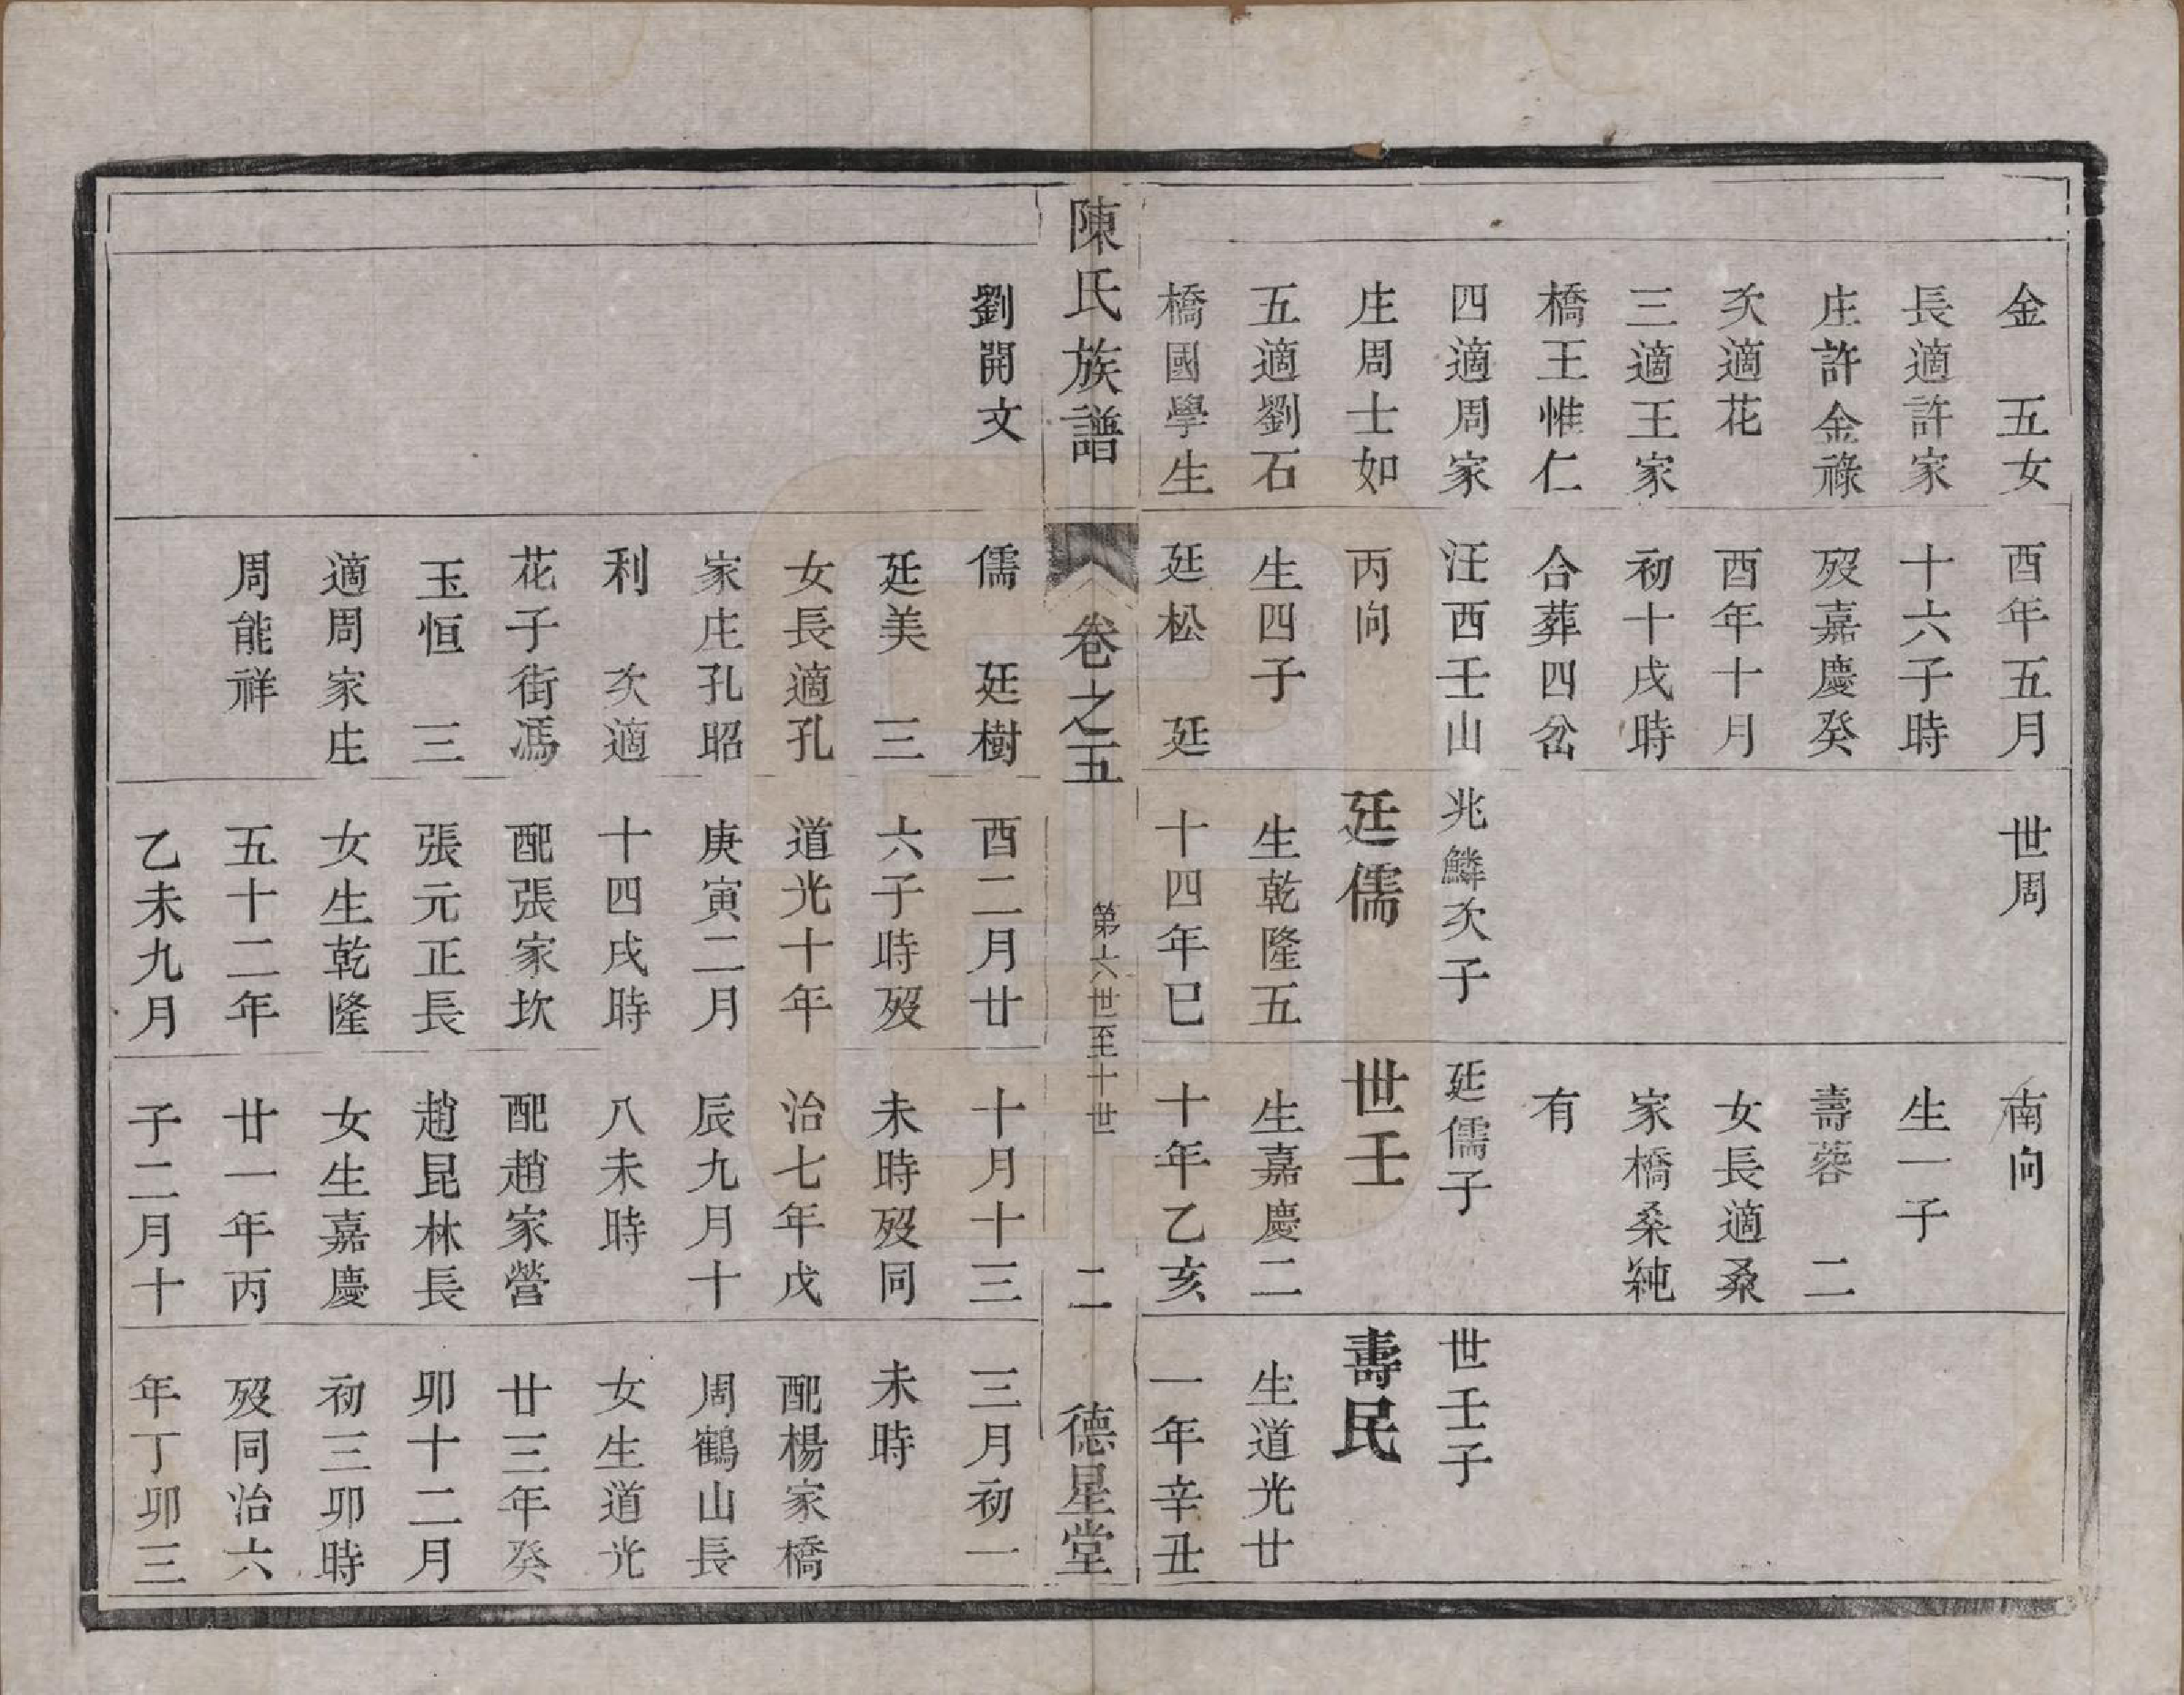 金　五女
長適許家
庄許金祿
㳄適花
三適王家
橋王惟仁
四適周家
庄周士如
五適劉石
橋國學生
劉開文
酉年五月
十六子時
歿嘉慶癸
酉年十月
初十戌時
合葬四岔
汪西壬山
丙向
生四子
廷松　廷
儒　廷樹
廷美　三
女長適孔
家庄孔昭
利　㳄適
花子街馮
玉恒　三
適周家庄
周能祥
世周
兆鱗次子
廷儒
生乾隆五
十四年已
酉二月廿
六子時歿
道光十年
庚寅二月
十四戌時
配張家坎
張元正長
女生乾隆
五十二年
乙未九月
南向
生一子
壽蓉　二
女長適桑
家橋桑純
有
廷儒子
世壬
生嘉慶二
十年乙亥
十月十三
未時歿同
治七年戊
辰九月十
八未時
配趙家營
趙昆林長
女生嘉慶
廿一年丙
子二月十
世壬子
壽民
生道光廿
一年辛丑
三月初一
未時
配楊家橋
周鶴山長
女生道光
廿三年癸
卯十二月
初三卯時
歿同治六
年丁卯三
陳氏族譜
卷之五
第六世至十世
二
德星堂